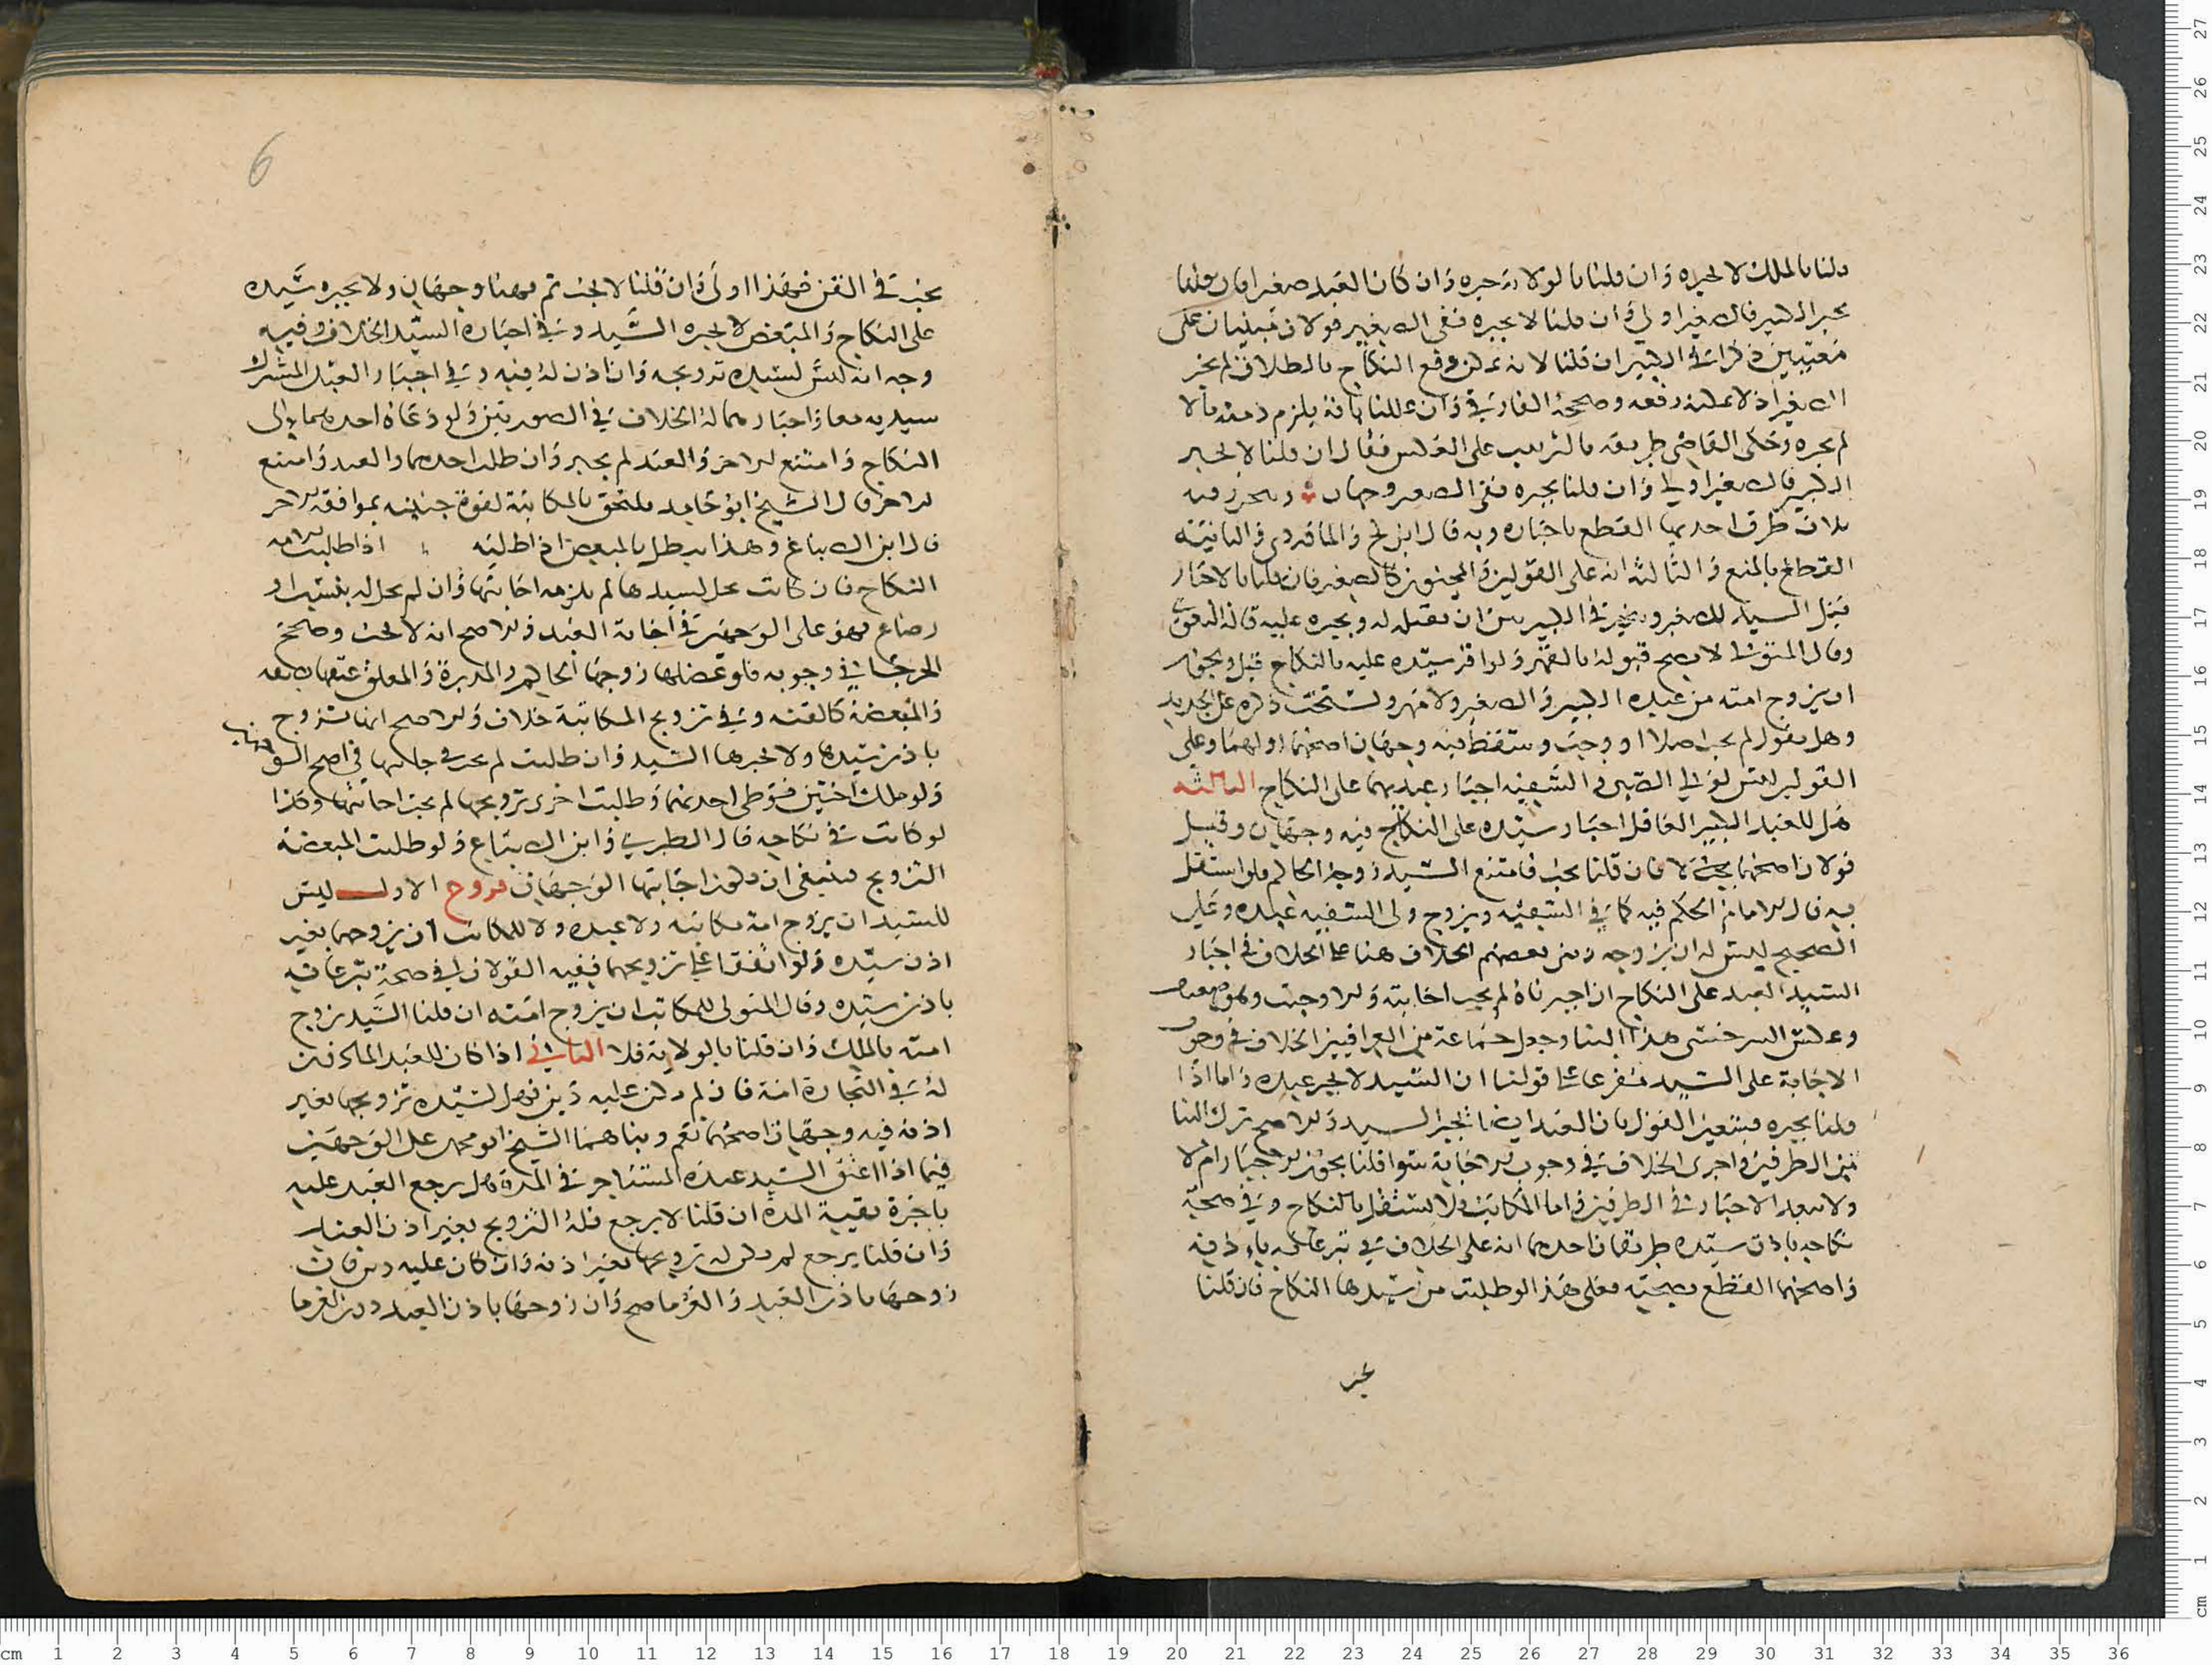 قلنا بالملك لا يجبره وان قلنا بالولاية جبره وان كان العبد صغيرا فان قلنا
يجبر الكبير فالصغير اولى وان قلنا لا يجبره ففي الصغير قولان مبنيان على
معنيين ذكرا في الكبير ان قلنا لانه يملك رفع النكاح بالطلاق لم يجز
الصغير اذ لا يملك رفعه وصححه الفارقي وان عللنا بانه يلزم ذمته مالا
لم يجبره وحكى القاضي طريقه بالترتيب على العكس فقال ان قلنا لا يجبر
الكبير فالصغير اولى وان قلنا يجبره ففي الصغير وجهان
ثلاث طرق احديها القطع باجباره وبه قال ابن كج والماوردي والثانية
القطع بالمنع والثالثة انه على القولين والمجنون كالصغير فان قلنا بالاجبار
قبل السيد للصغير ويخير في الكبير بين ان يقبل له ويجبره عليه قاله البغوي
وقال المتولي لا يصح قبوله بالقهر ولو اقر سيده عليه بالنكاح قبل ويجوز
ان يزوج امته من عبده الكبير والصغير ولا مهر ويستحب ذكره على الجديد
وهل نقول لم يجب اصلا او وجب وسقط فيه وجهان اصحهما اولهما وعلى
القولين ليس لولي الصبي والسفيه اجبار عبديهما على النكاح الثالثة
هل للعبد الكبير العاقل اجبار سيده على النكاح فيه وجهان وقيل
قولان اصحهما لا فان قلنا يجب فامتنع السيد زوجه الحاكم فلو استقل
به قال الامام الحكم فيه كما في السفيه ويزوج ولي السفيه عبده وعلى
الصحيح ليس له ان يزوجه وبنى بعضهم الخلاف هنا على الخلاف في اجبار
السيد العبد على النكاح ان اجبرناه لم يجب اجابته والا وجبت وهو
وعكس السرخسي هذا البنا وجعل جماعة من العراقيين الخلاف في وجوب
الاجابة على السيد مفرعا على قولنا ان السيد لا يجبر عبده واما اذا
قلنا يجبره فيستعين القول بان العبد ايضا يجبر السيد والاصح ترك البنا
من الطرفين واجرى الخلاف في وجوب الاجابة سوا قلنا يجوز الاجبار ام لا
ولا يبعد الاجبار في الطرفين واما المكاتب فلا يستقل بالنكاح وفي صحة
نكاحه باذن سيده طريقان احدهما انه على الخلاف في تبرعاته باذنه
واصحهما القطع بصحته فعلى هذا لو طلبت من سيدها النكاح فان قلنا
يجب
يجب في القن فهذا اولى وان قلنا لا يجب ثم فهنا وجهان ولا يجبره سيده
على النكاح والمبعض لا يجبره السيد وفي اجباره السيد الخلاف وفيه
وجه انه ليس لسيده تزويجه وان اذن له فيه وفي اجبار العبد المشترك
سيديه معا واجبارهما له الخلاف في الصورتين ولو دعاه احدهما الى
النكاح وامتنع الاخر والعبد لم يجبر وان طلب احدهما والعبد وامتنع
الاخر قال الشيخ ابو حامد ملتحق بالمكاتبة لقوة جنبته بموافقة الاخر
قال ابن الصباغ وهذا يبطل بالمبعض اذا طلبه اذا طلبت الامه
النكاح فان كانت تحل لسيدها لم يلزمه اجابتها وان لم تحل له بنسب او
رضاع فهو على الوجهين في اجابة العبد والاصح انه لا يجب وصحح
الجرجاني وجوبه فلو عضلها زوجها الحاكم والمدبرة والمعلق عتقها بصفه
والمبعضة كالقنه وفي تزويج المكاتبة خلاف والاصح انها تتزوج
باذن سيدها ولا يجبرها السيد وان طلبت لم يجز في اصح
ولو ملك اختين فوطى احديهما وطلبت اخرى تزويجها لم يجب اجابتها وكذا
لو كانت في نكاحه قال الطبري وابن الصباغ ولو طلبت المبعضة
التزويج فينبغي ان يكون اجابتها الوجهان فروع الاول ليس
للسيد ان يزوج امة مكاتبه ولا عبده ولا للمكاتب ان يزوجها بغير
اذن سيده ولو اتفقا على تزويجها ففيه القولان في صحة تبرعاته
باذن سيده وقال المتولي للمكاتب ان يزوج امته ان قلنا السيد يزوج
امته بالملك وان قلنا بالولاية فلا الثاني اذا كان للعبد الماذون
له في التجارة امة فان لم يكن عليه دين فهل لسيده تزويجها بغير
اذنه فيه وجهان اصحهما نعم وبناهما الشيخ ابو محمد على الوجهين
فيما اذا اعتق السيد عبده المستاجر في المدة هل يرجع العبد عليه
باجرة بقية المدة ان قلنا لا يرجع فله التزويج بغير اذن العبد
وان قلنا يرجع لم يكن له تزويجها بغير اذنه وان كان عليه دين فان
زوجها باذن العبد والغرما صح وان زوجها باذن العبد دون الغرما
6